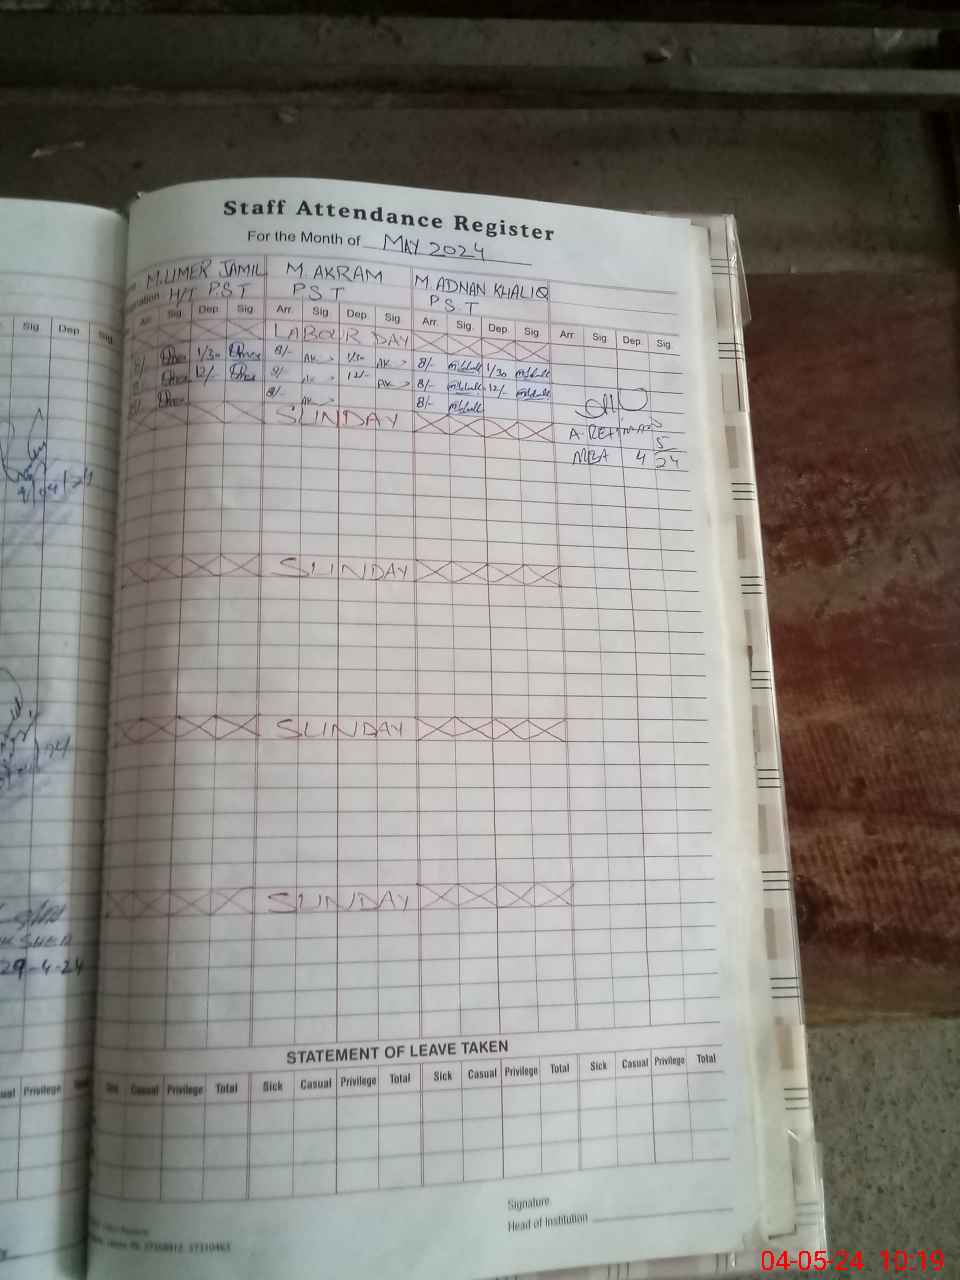 Staff Attendance Register
For the Month of MAY 2024
M.UMER JAMIL M. AKRAM M. ADNAN KHALIQ
H/T P.S.T P S T P S T
Sig. Dep. Sig.
Arr. Sig. Dep. Sig. Arr. Sig. Dep. Sig. Arr. Sig. Dep. Sig. Arr. Sig. Dep. Sig.
LABOUR DAY
8/- 1/30 8/- AK 1/30 AK 8/- 1/30
8/- 12/- 8/- AK 12/- AK 8/- 12/-
8/- 8/- AK 8/-
SUNDAY
MEA 4 5 24
SUNDAY
SUNDAY
SUNDAY
29-4-24
STATEMENT OF LEAVE TAKEN
Privilege Sick Casual Privilege Total Sick Casual Privilege Total Sick Casual Privilege Total Sick Casual Privilege Total
Signature
Head of Institution
04-05-24 10:19